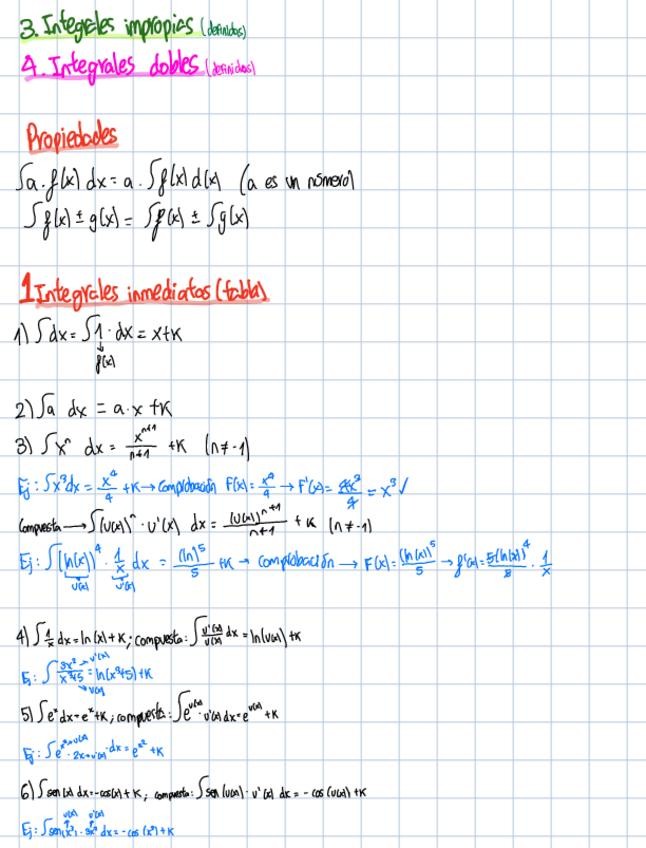 3. Integrales impropias (definidas)
4. Integrales dobles (definidas)
Propiedades
∫a·f(x) dx = a·∫f(x) d(x) (a es un número)
∫f(x) ± g(x) = ∫f(x) ± ∫g(x)
1 Integrales inmediatas (tabla)
1) ∫dx = ∫1·dx = x+K
f(x)
2) ∫a dx = a·x +K
3) ∫xⁿ dx = xⁿ⁺¹/n+1 +K (n≠-1)
Ej: ∫x³dx = x⁴/4 +K → Comprobación F(x) = x⁴/4 → F'(x) = 4x³/4 = x³ ✓
Compuesta → ∫(u(x))ⁿ · u'(x) dx = (u(x))ⁿ⁺¹/n+1 + K (n≠-1)
Ej: ∫(ln(x))⁴ · 1/x dx = (ln)⁵/5 +K → comprobación → F(x) = (ln(x))⁵/5 → f'(x) = 5(ln(x))⁴/5 · 1/x
u(x) u'(x)
4) ∫1/x dx = ln(x)+K; compuesta: ∫u'(x)/u(x) dx = ln(u(x)) +K
Ej: ∫3x²/x³+5 = ln(x³+5)+K
→ u'(x)
→ u(x)
5) ∫eˣ dx = eˣ+K; compuesta: ∫e^u(x) · u'(x) dx = e^u(x) +K
Ej: ∫e^x²→u(x) · 2x→u'(x) · dx = e^x² +K
6) ∫sen(x) dx = -cos(x)+K; compuesta: ∫sen(u(x)) · u'(x) dx = -cos(u(x)) +K
u(x) u'(x)
Ej: ∫sen(x³) · 3x² dx = -cos(x³)+K